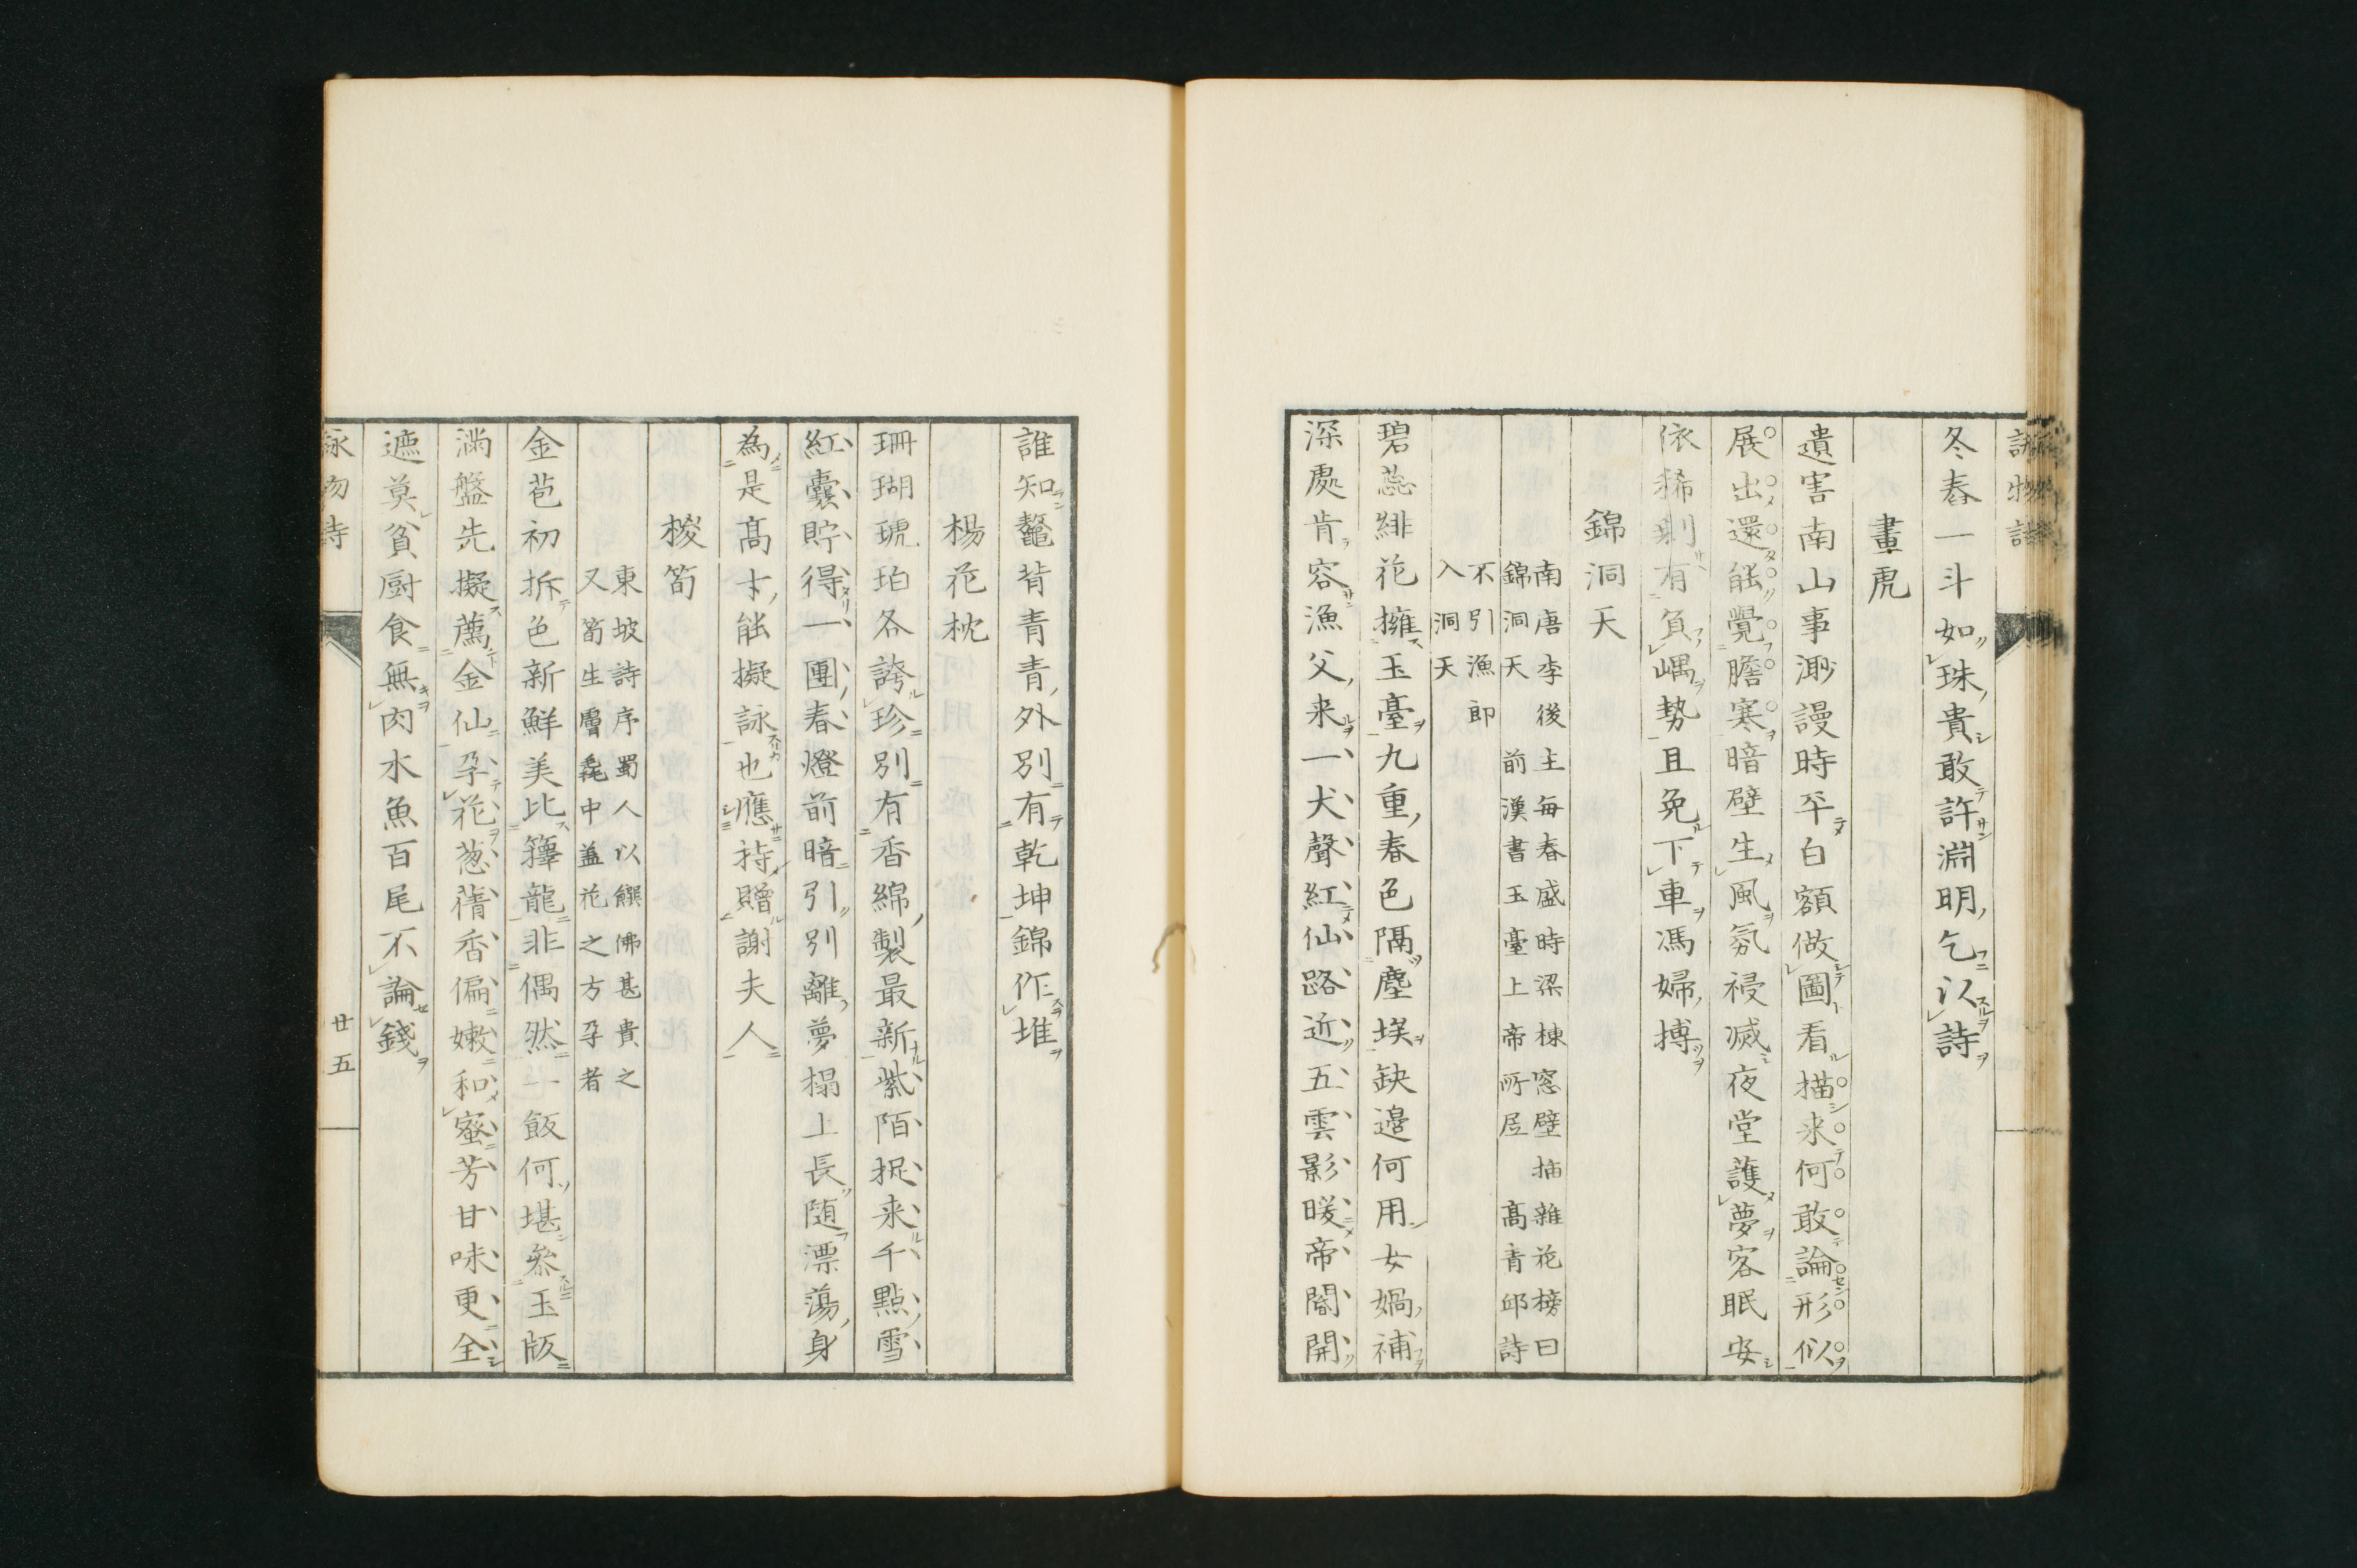 詠物詩
冬舂一斗如珠貴敢許淵明乞以詩
畫虎
遺害南山事渺謾時平白額做圖看描来何敢論形似
展出還能覺膽寒暗壁生風氛祲滅夜堂護夢客眠安
依稀剩有負嵎勢且免下車馮婦搏
錦洞天
南唐李後主每春盛時梁棟窓壁插雜花榜曰
錦洞天 前漢書玉臺上帝所居 髙青邱詩
不引漁郎
入洞天
碧蕊緋花擁玉臺九重春色隔塵埃缺邊何用女媧補
深處肯容漁父来一犬聲紅仙路近五雲影暖帝閽開
誰知鼇背青青外別有乾坤錦作堆
楊花枕
珊瑚琥珀各誇珍別有香綿製最新紫陌捉来千點雪
紅囊貯得一團春燈前暗引別離夢榻上長随漂蕩身
為是髙才能擬詠也應持贈謝夫人
椶筍
東坡詩序蜀人以饌佛甚貴之
又筍生膚毳中盖花之方孕者
金苞初拆色新鮮美比籜龍非偶然一飯何堪叅玉版
满盤先擬薦金仙孕花葱蒨香偏嫩和蜜芳甘味更全
遮莫貧厨食無肉水魚百尾不論錢
詠物詩
廿五